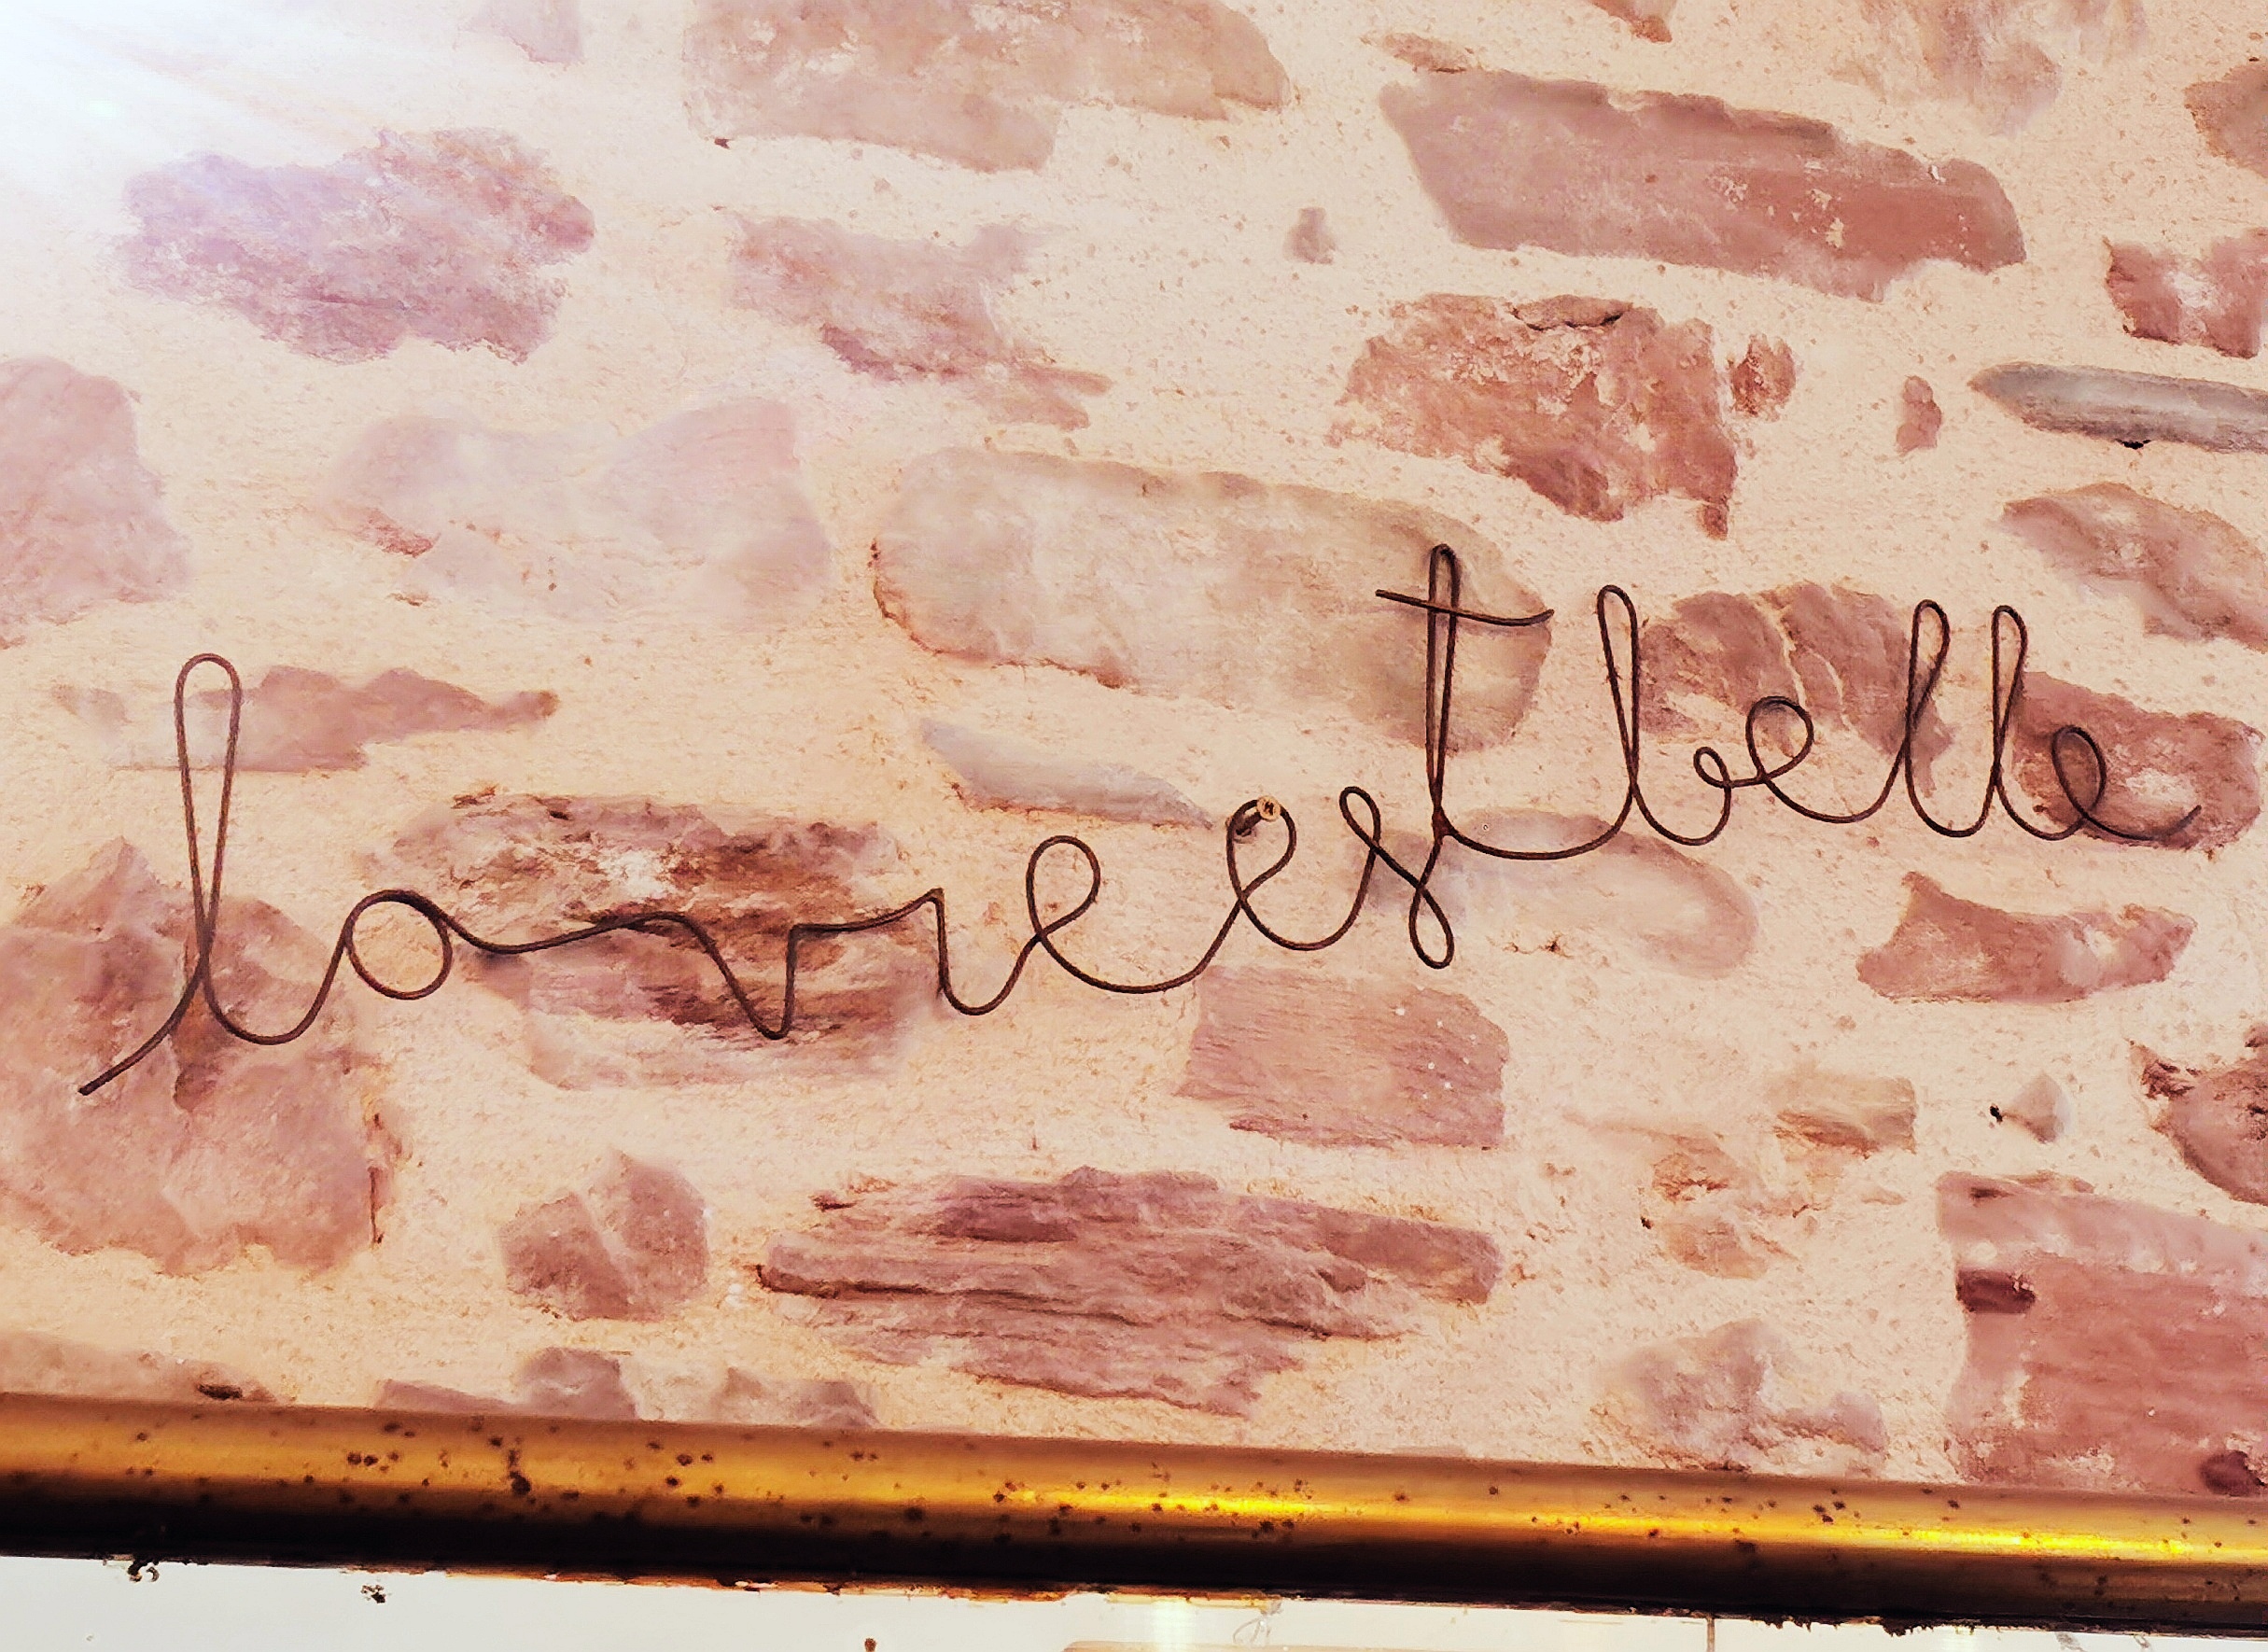 la vie est belle